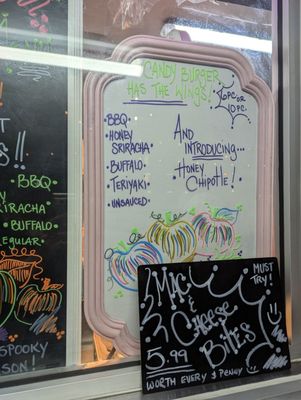 !!
BBQ
SRIRACHA
BUFFALO
REGULAR
SPOOKY
SON!
CANDY BURGER
HAS THE WINGS!
6PC OR
10PC.
BBQ
HONEY
SRIRACHA
BUFFALO
TERIYAKI
UNSAUCED
AND
INTRODUCING...
HONEY
CHIPOTLE!
MUST
TRY!
MAC
& CHEESE
BITES
5.99
WORTH EVERY PENNY